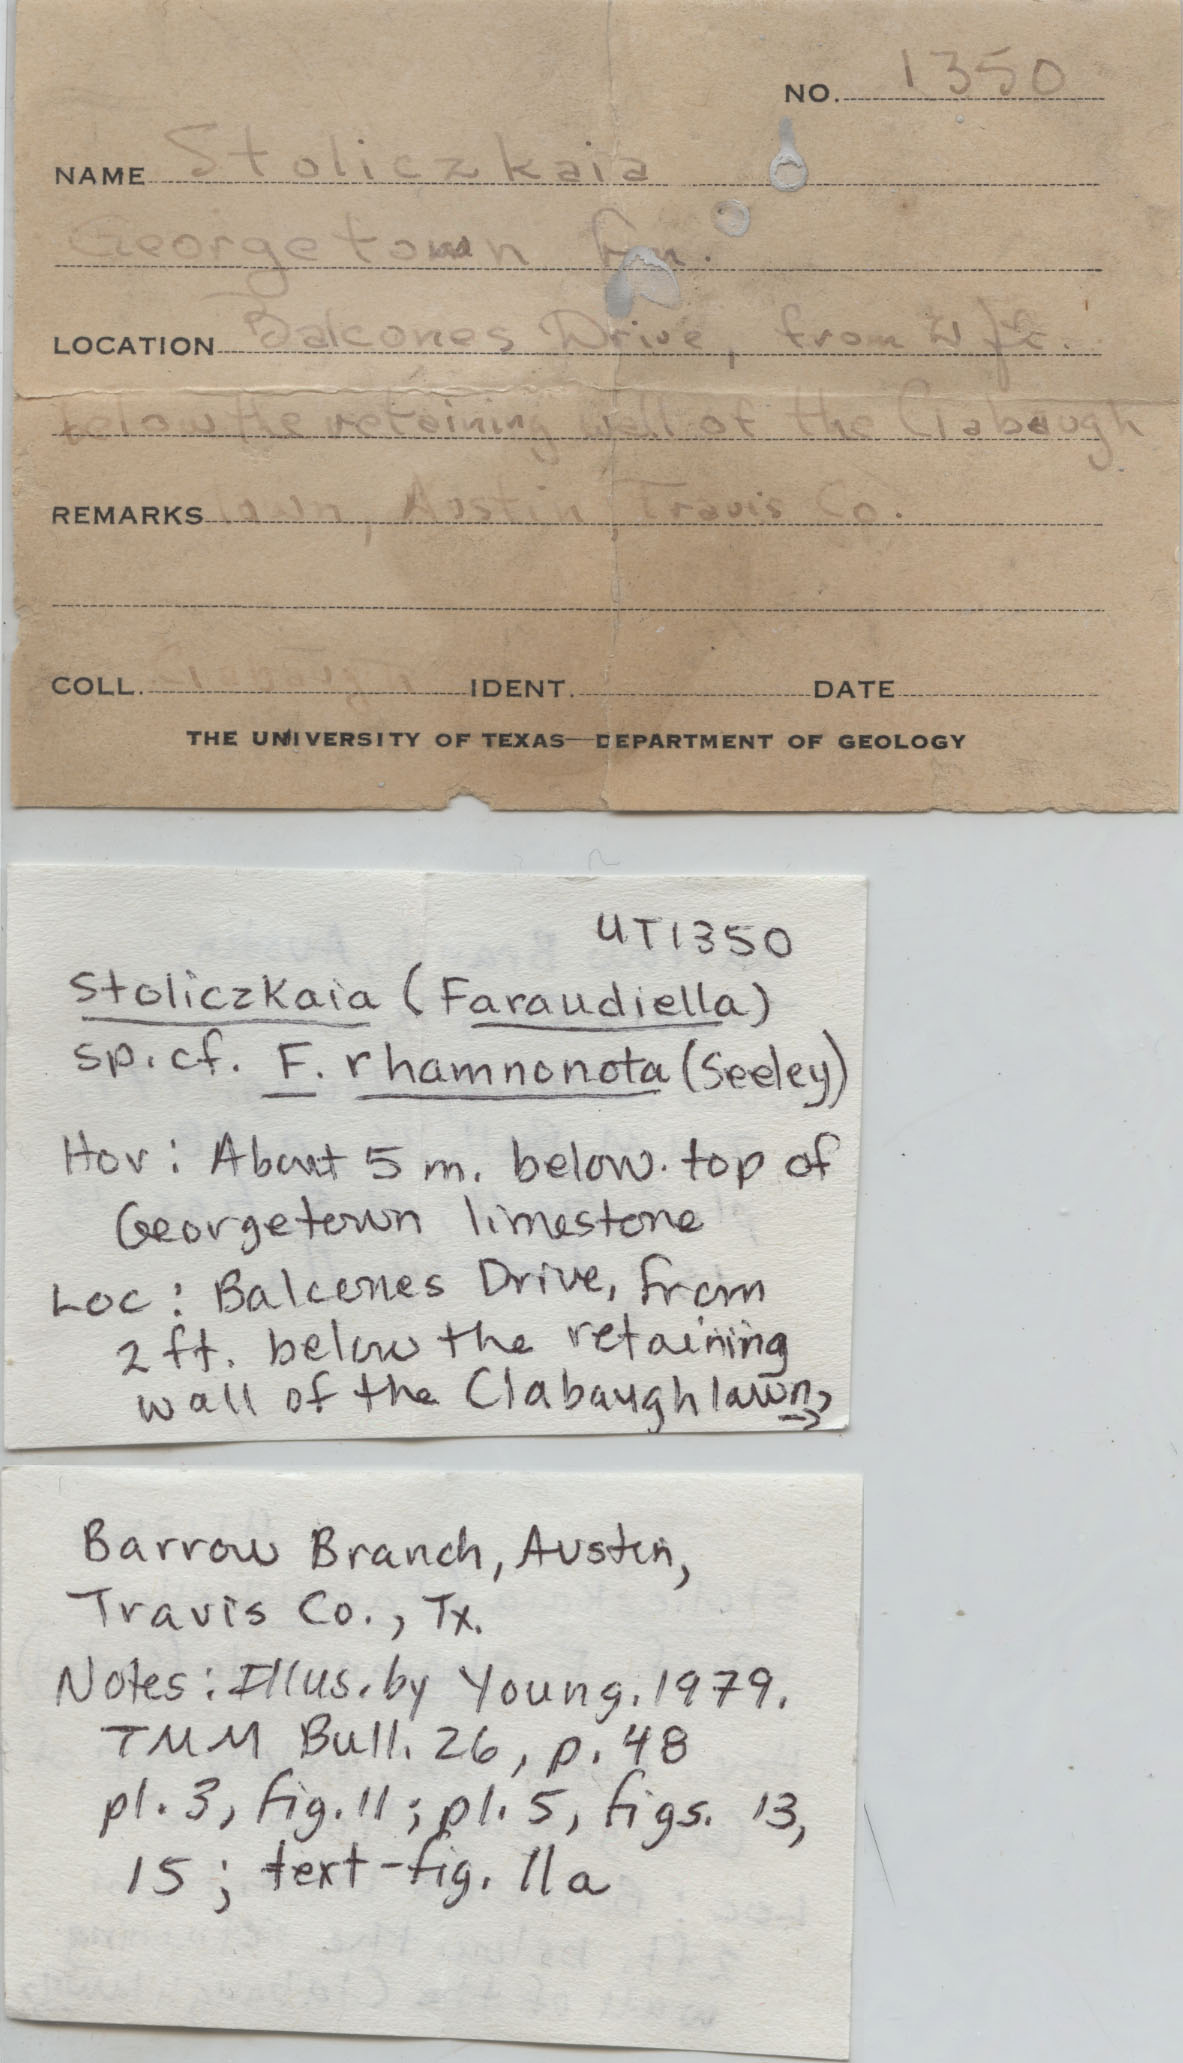 NO. 1350
NAME Stoliczkaia
Georgetown fm.
LOCATION Balcones Drive, from ft.
below the retaining wall of the Clabaugh
REMARKS lawn, Austin, Travis Co.
COLL. Clabaugh IDENT. DATE
THE UNIVERSITY OF TEXAS—DEPARTMENT OF GEOLOGY
UT1350
Stoliczkaia (Faraudiella)
sp. cf. F. rhamnonota (Seeley)
Hor: About 5 m. below top of
Georgetown limestone
Loc: Balcones Drive, from
2 ft. below the retaining
wall of the Clabaugh lawn,
→
Barrow Branch, Austin,
Travis Co., Tx.
Notes: Illus. by Young. 1979.
TMM Bull. 26, p. 48
pl. 3, fig. 11; pl. 5, figs. 13,
15; text-fig. 11a